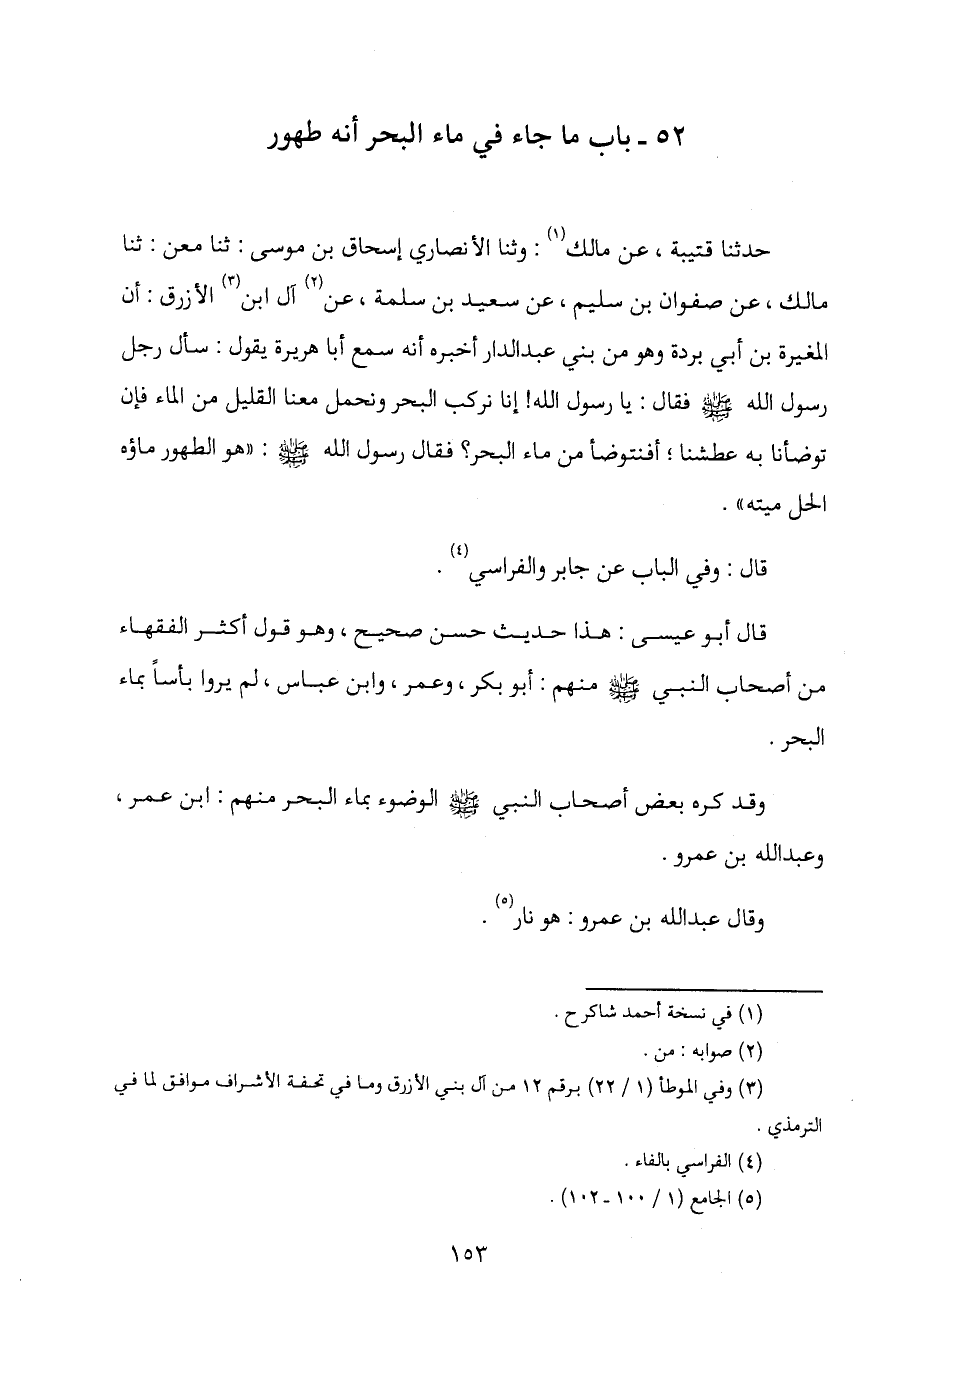 ٥٢ ـ باب ما جاء في ماء البحر أنه طهور
حدثنا قتيبة ، عن مالك(١) : وثنا الأنصاري إسحاق بن موسى : ثنا معن : ثنا
مالك ، عن صفوان بن سليم ، عن سعيد بن سلمة ، عن(٢) آل ابن(٣) الأزرق : أن
المغيرة بن أبي بردة وهو من بني عبدالدار أخبره أنه سمع أبا هريرة يقول : سأل رجل
رسول الله ﷺ فقال : يا رسول الله! إنا نركب البحر ونحمل معنا القليل من الماء فإن
توضأنا به عطشنا ؛ أفنتوضأ من ماء البحر؟ فقال رسول الله ﷺ : «هو الطهور ماؤه
الحل ميته» .
قال : وفي الباب عن جابر والفراسي(٤) .
قال أبو عيسى : هذا حديث حسن صحيح ، وهو قول أكثر الفقهاء
من أصحاب النبي ﷺ منهم : أبو بكر ، وعمر ، وابن عباس ، لم يروا بأساً بماء
البحر .
وقد كره بعض أصحاب النبي ﷺ الوضوء بماء البحر منهم : ابن عمر ،
وعبدالله بن عمرو .
وقال عبدالله بن عمرو : هو نار(٥) .
(١) في نسخة أحمد شاكر ح .
(٢) صوابه : من .
(٣) وفي الموطأ (١ / ٢٢) برقم ١٢ من آل بني الأزرق وما في تحفة الأشراف موافق لما في
الترمذي .
(٤) الفراسي بالفاء .
(٥) الجامع (١ / ١٠٠ ـ ١٠٢) .
١٥٣